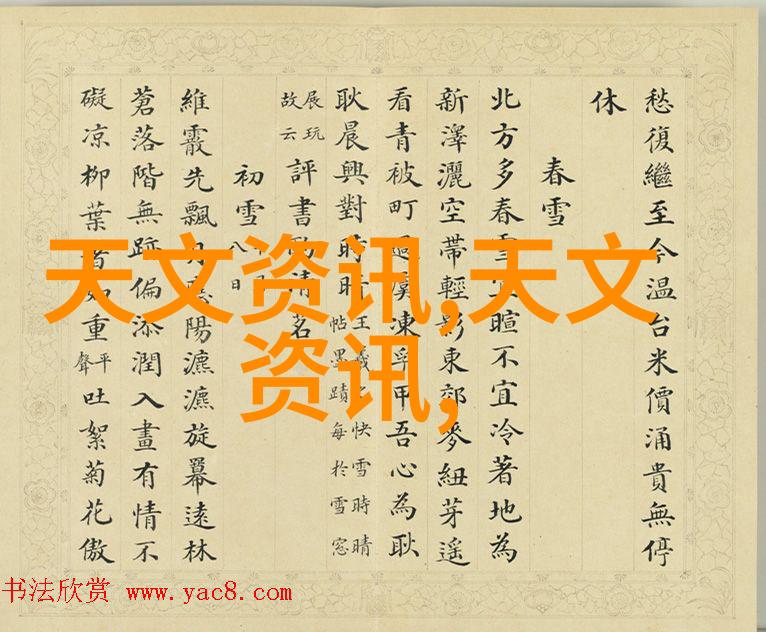 愁復繼至今温台米價涌貴無停
休
春雪
北方多春雪宜暄不宜冷著地為
新澤灑空帶輕影東郊麥紐芽遥
看青被町過虞凍孚甲吾心為耿
耿晨興對時晴
王羲之快雪時晴
帖墨蹟每於雪窓
展玩
故云
評書清茗
初雪
八日
維霰先飄陽瀌瀌旋羃遠林
蒼落階無跡偏添潤入畫有情不
礙凉柳葉如重
平
聲
吐絮菊花傲
天文资讯,天文
资讯,
书法欣赏 www.yac8.com